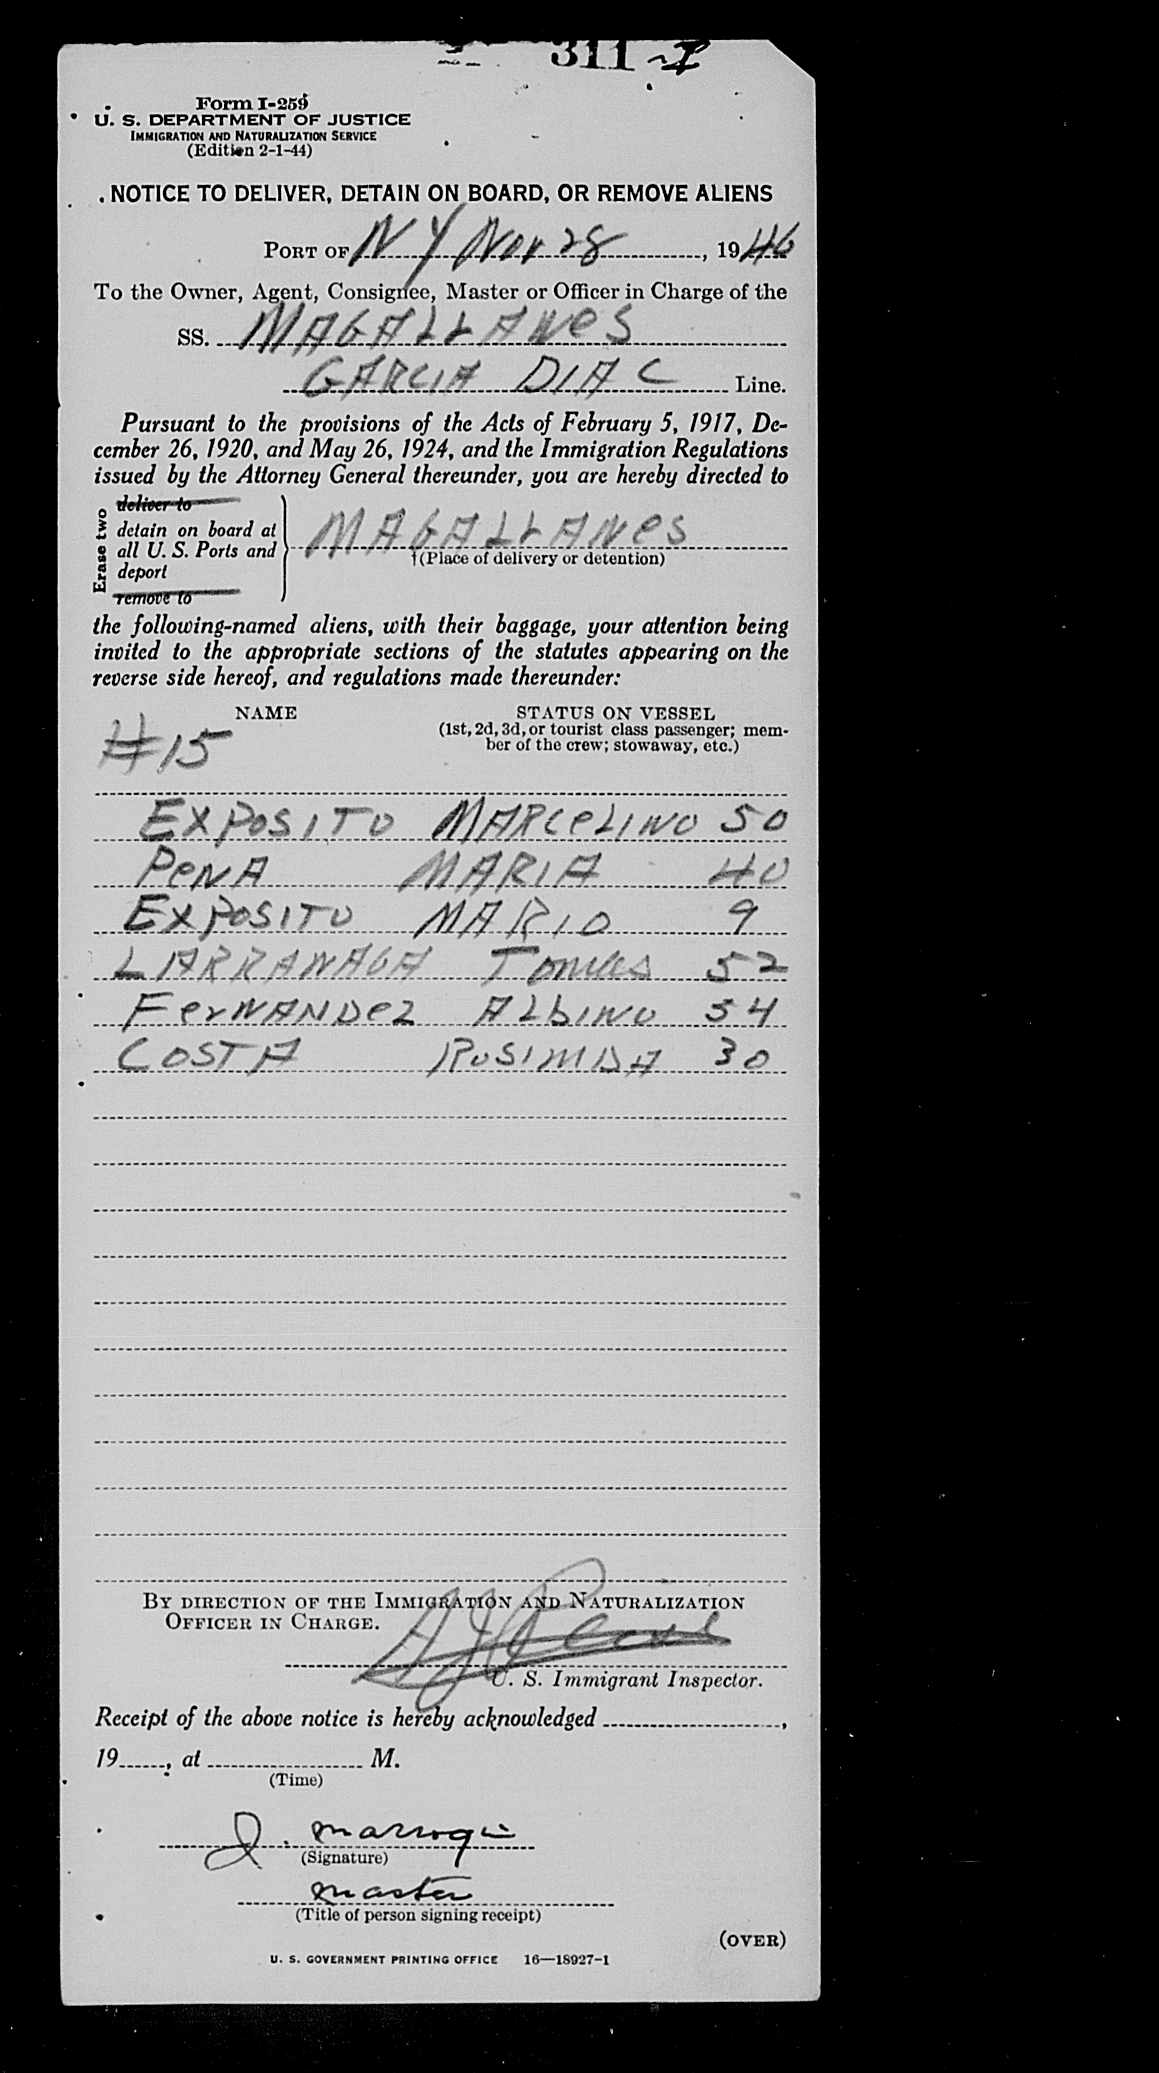 311
Form I-259
U. S. DEPARTMENT OF JUSTICE
IMMIGRATION AND NATURALIZATION SERVICE
(Edition 2-1-44)
NOTICE TO DELIVER, DETAIN ON BOARD, OR REMOVE ALIENS
PORT OF N Y Nov 28, 1946
To the Owner, Agent, Consignee, Master or Officer in Charge of the
SS. MAGALLANES
GARCIA DIAC Line.
Pursuant to the provisions of the Acts of February 5, 1917, De-
cember 26, 1920, and May 26, 1924, and the Immigration Regulations
issued by the Attorney General thereunder, you are hereby directed to
Erase two
deliver to
detain on board at
all U. S. Ports and
deport
remove to
MAGALLANES
†(Place of delivery or detention)
the following-named aliens, with their baggage, your attention being
invited to the appropriate sections of the statutes appearing on the
reverse side hereof, and regulations made thereunder:
NAME STATUS ON VESSEL
(1st, 2d, 3d, or tourist class passenger; mem-
ber of the crew; stowaway, etc.)
#15
EXPOSITO MARCELINO 50
PENA MARIA 40
EXPOSITO MARIO 9
LARRANAGA Tomas 52
FERNANDEZ ALBINO 54
COSTA 30
BY DIRECTION OF THE IMMIGRATION AND NATURALIZATION
OFFICER IN CHARGE.
U. S. Immigrant Inspector.
Receipt of the above notice is hereby acknowledged ,
19 , at M.
(Time)
J.
(Signature)
master
(Title of person signing receipt)
(OVER)
U. S. GOVERNMENT PRINTING OFFICE 16—18927-1